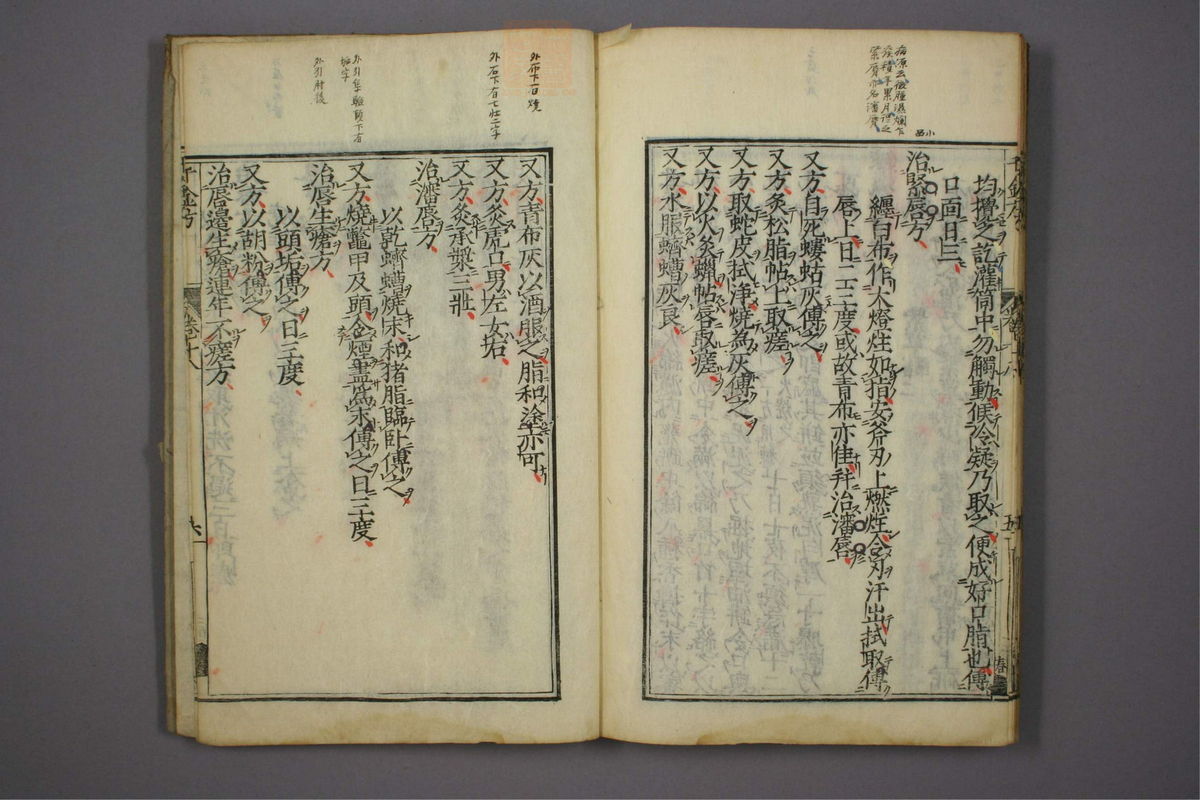 均攪之訖灌筒中勿觸動候冷凝乃取之便成好口脂也傅
口面日三
治緊唇方
纏白布作大燈炷如指安斧刃上燃炷令刃汗出拭取傅
唇上日二三度或故青布亦佳并治瀋唇
又方自死螻蛄灰傅之
又方炙松脂帖上取瘥
又方取蛇皮拭淨燒為灰傅之
又方以火炙蠟帖唇取瘥
又方水服蠐螬灰良
又方青布灰以酒服之脂和塗亦可
又方灸虎口男左女右
又方灸承漿三壯
治瀋唇方
以乾蠐螬燒末和猪脂臨卧傅之
又方燒鼈甲及頭令煙盡為末傅之日三度
治唇生瘡方
以頭垢傅之日三度
又方以胡粉傅之
治唇邊生瘡連年不瘥方
千金方
卷十八
六
五
春
外布下一曰燒
外右下有七壯二字
外引肘後